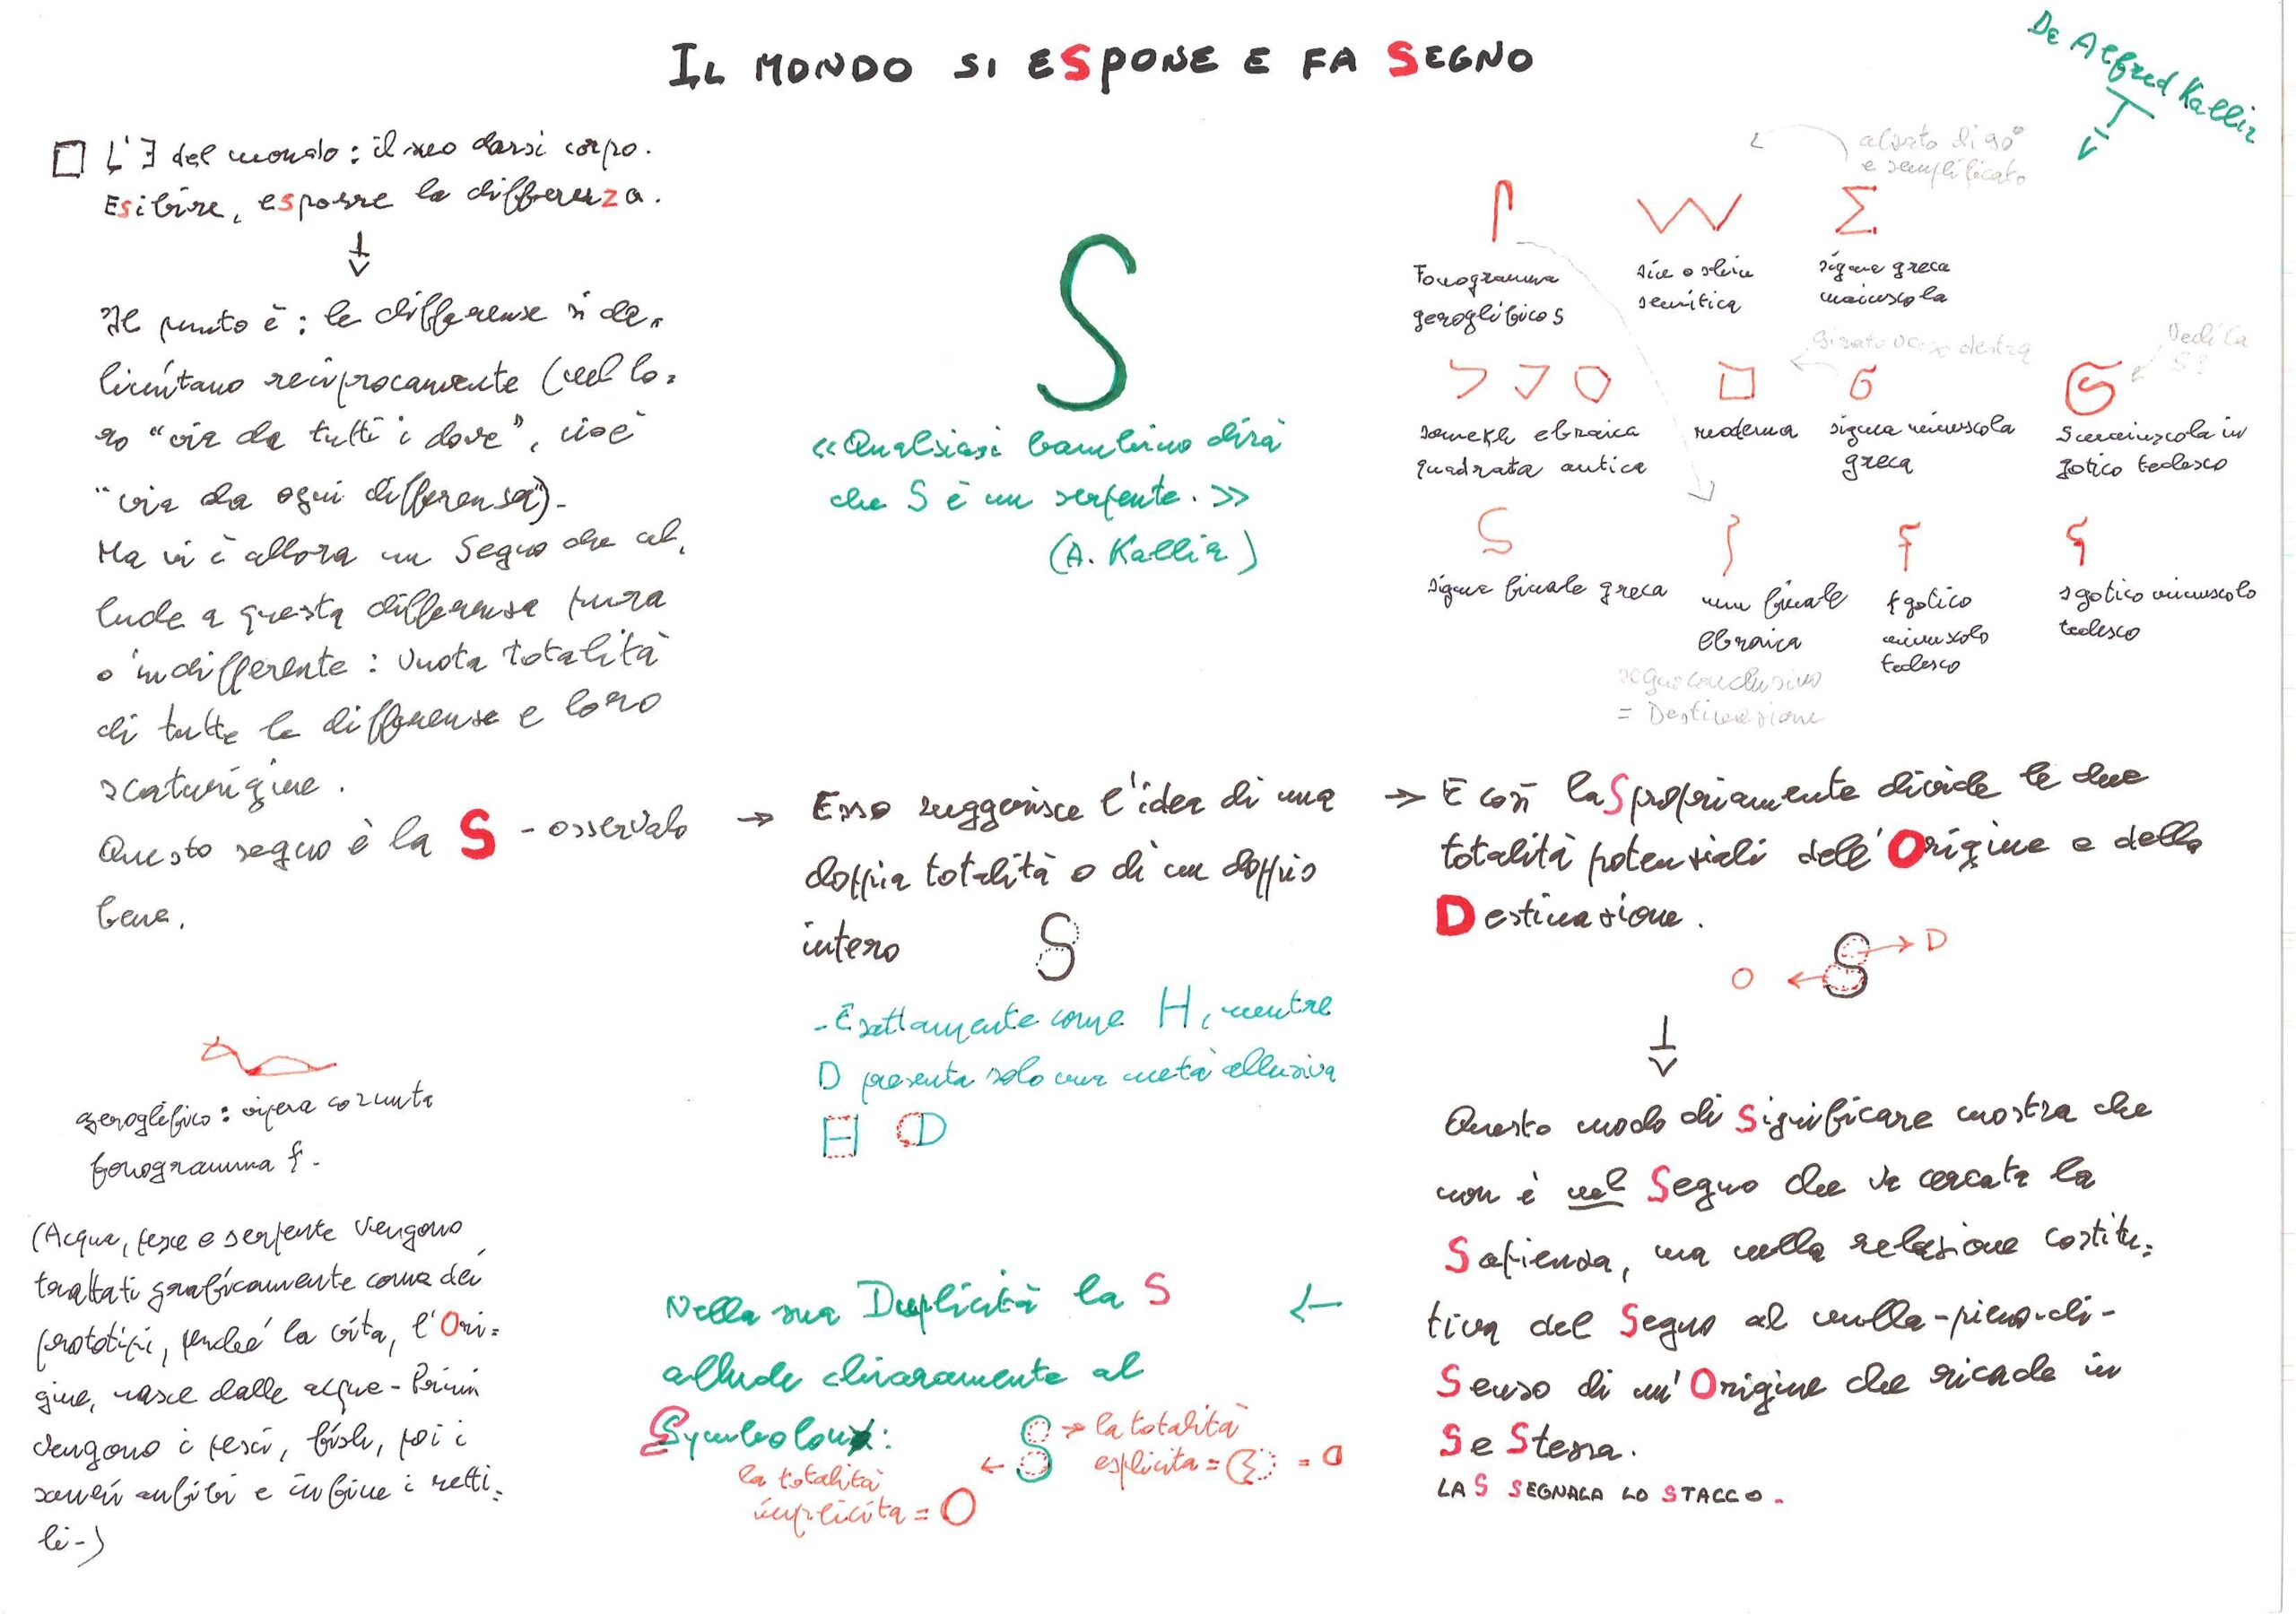 IL MONDO SI ESPONE E FA SEGNO
De Alfred Kallir
□ L'∃ del mondo: il suo darsi corpo.
Esibire, esporre la differenza.
Il punto è: le differenze si de=
limitano reciprocamente (nel lo=
ro "via da tutti i dove", cioè
"via da ogni differenza").
Ma vi è allora un Segno che al=
lude a questa differenza pura
o indifferente: vuota totalità
di tutte le differenze e loro
scaturigine.
Questo segno è la S - osservalo
bene.
geroglifico: vipera cornuta
fonogramma f.
(Acqua, pesce e serpente vengono
trattati graficamente come dei
prototipi, perché la vita, l'Ori=
gine, nasce dalle acque - Prima
vengono i pesci, poi i
anfibi e infine i retti=
li-)
S
«Qualsiasi bambino dirà
che S è un serpente.»
(A. Kallir)
alzato di 90°
e semplificato
W Σ
Fonogramma
geroglifico S
sin o shin
semitica
sigma greca
maiuscola
girato verso destra
Vedi la
S?
samekh ebraica
quadrata antica
moderna
sigma minuscola
greca
S maiuscola in
gotico tedesco
sigma finale greca
nun finale
ebraica
f gotico
minuscolo
tedesco
s gotico minuscolo
tedesco
segno conclusivo
= Destinazione
→ Esso suggerisce l'idea di una
doppia totalità o di un doppio
intero S
- Esattamente come H, mentre
D presenta solo una metà allusiva
H D
→ E così la S propriamente divide le due
totalità potenziali dell'Origine e della
Destinazione.
O ← S → D
Questo modo di Significare mostra che
non è nel Segno che va cercata la
Sapienza, ma nella relazione costitu=
tiva del Segno al nulla-pieno-di-
Senso di un'Origine che ricade in
Se Stessa.
LA S SEGNALA LO STACCO.
Nella sua Duplicità la S ←
allude chiaramente al
Symbolon:
← S → la totalità
esplicita = = D
la totalità
implicita = O